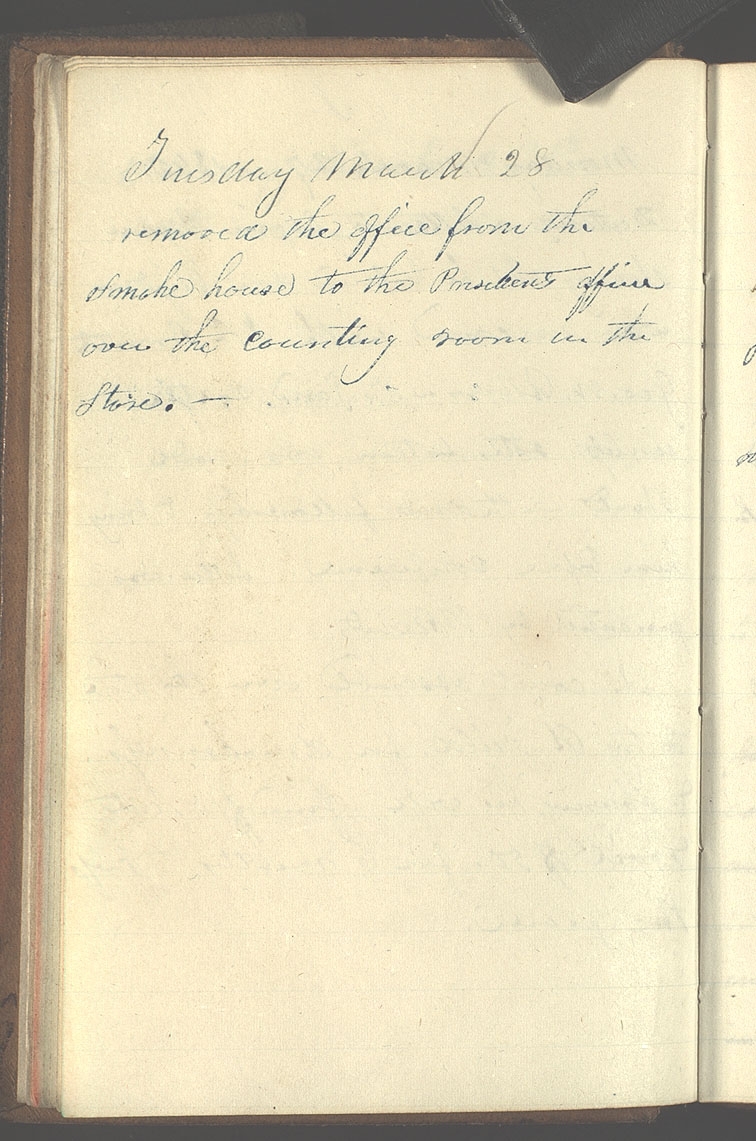 Tuesday March 28
removed the office from the
smoke house to the Presidents office
over the counting room in the
Store. —